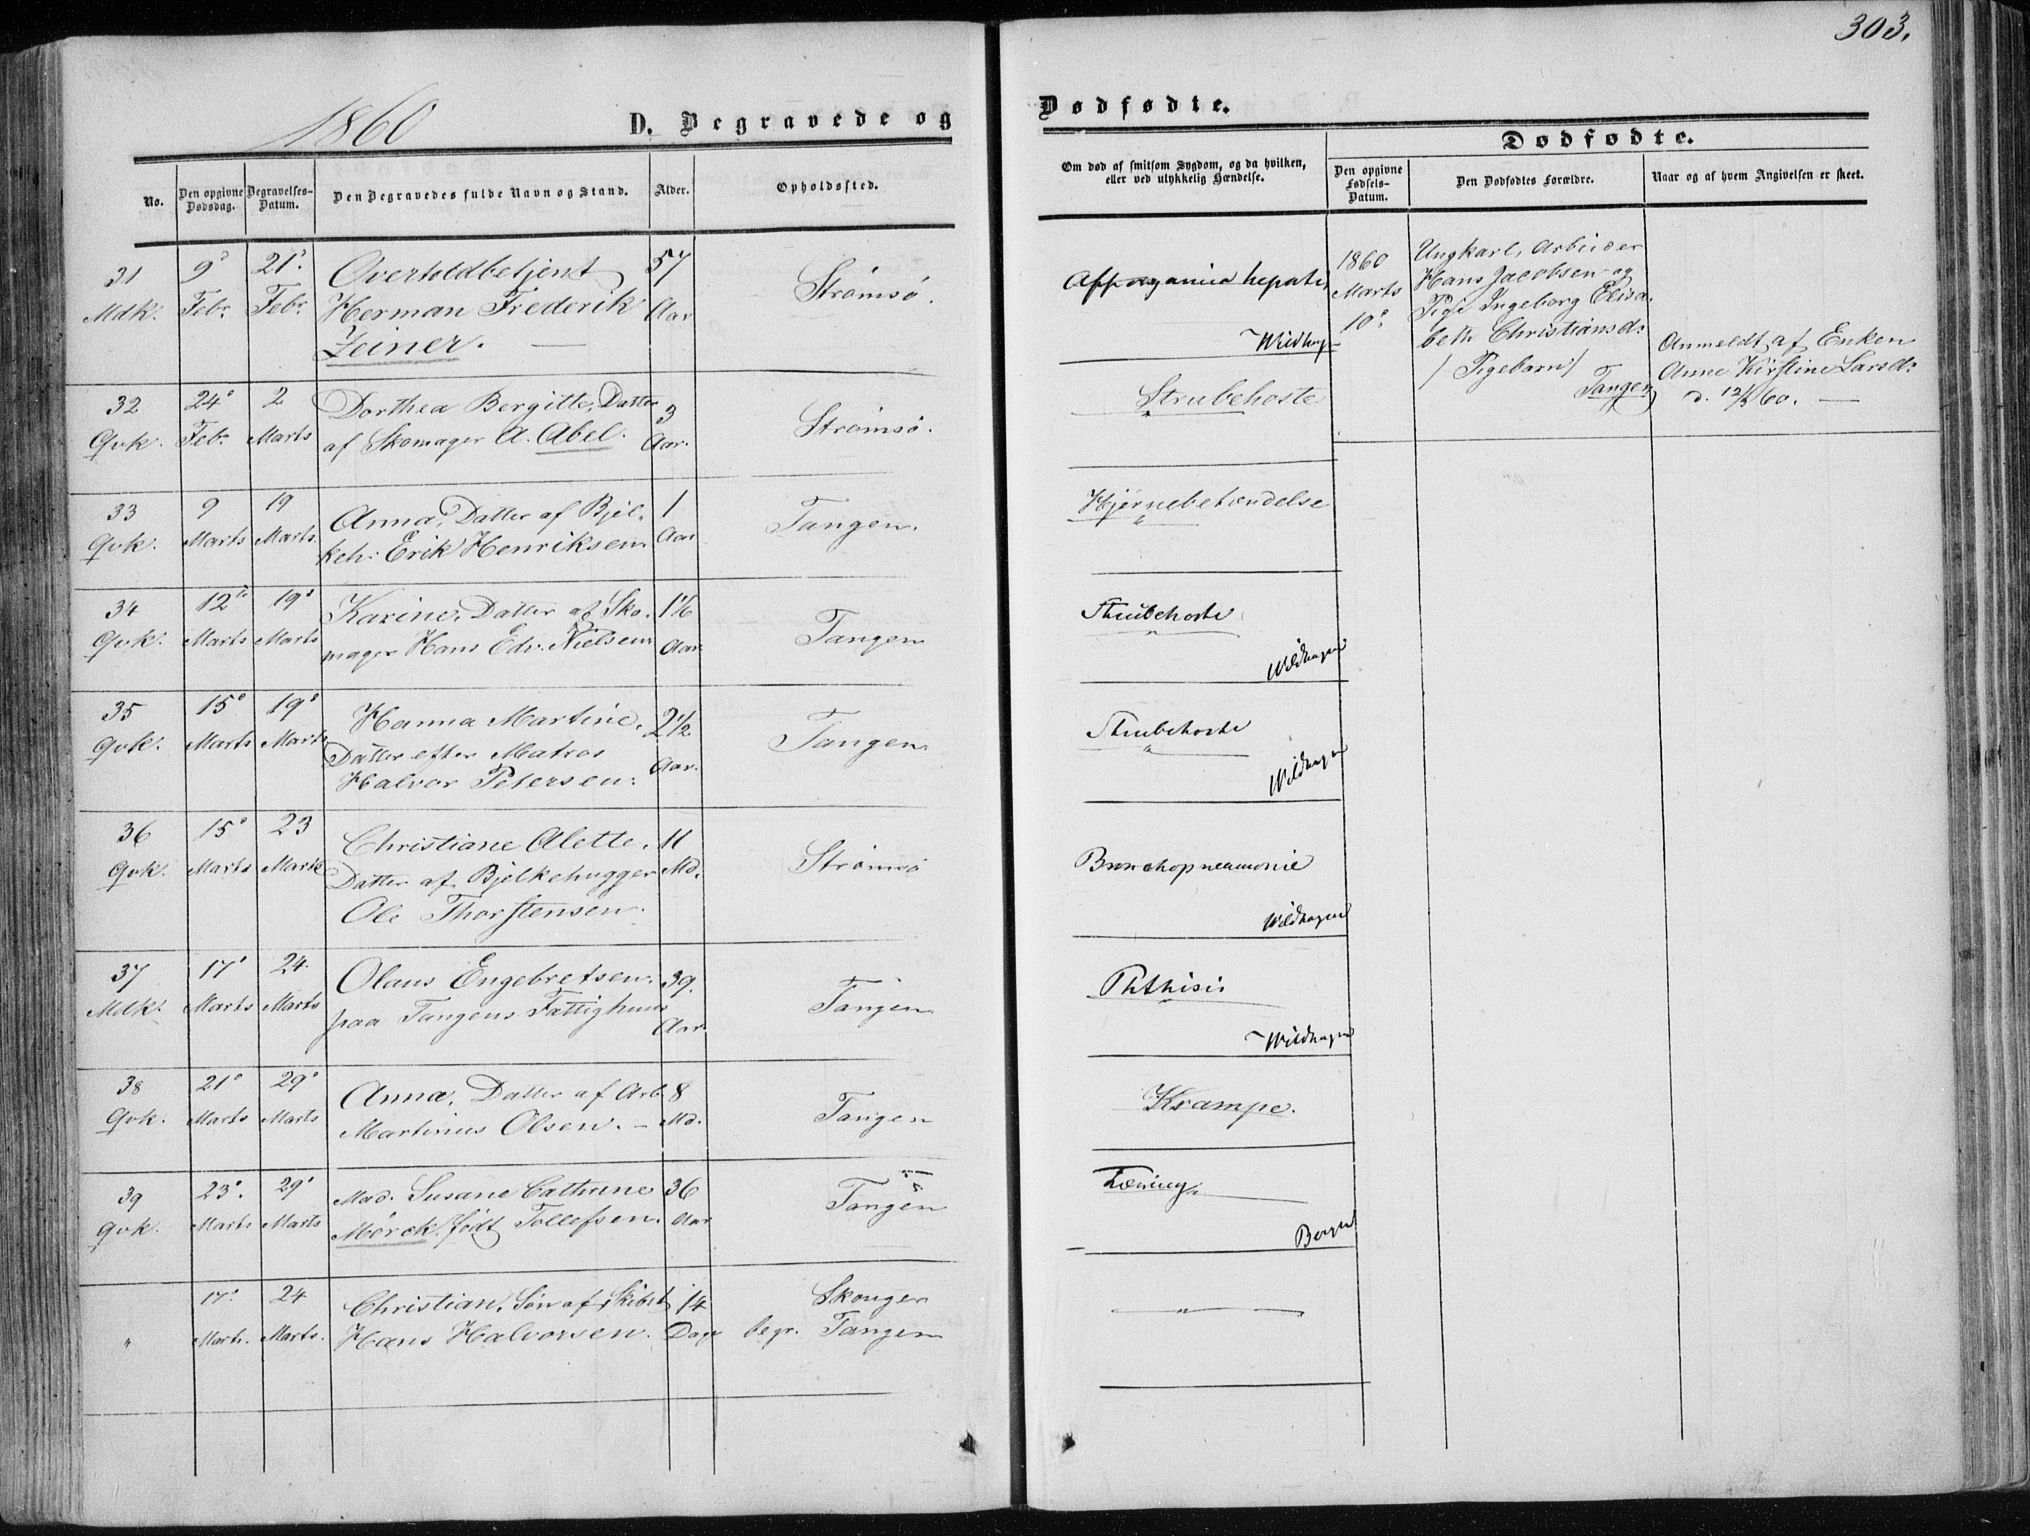 303.
1860
D. Begravede og
Dødfødte.
No.
Den opgivne Dødsdag.
Begravelses-Datum.
Den Begravedes fulde Navn og Stand.
Alder.
Opholdssted.
Om død af smitsom Sygdom, og da hvilken,
eller ved ulykkelig Hændelse.
Dødfødte.
Den opgivne Fødsels-Datum.
Den Dødfødtes Forældre.
Naar og af hvem Angivelsen er skeet.
31 9° 21° Overtoldbetjent 57 Strømsø.
Mdk. Febr. Febr. Herman Frederik Aar
Zeiner. —
organica hepatis
Wildhagen
32 24° 2 Dorthea Bergitte, Datter 3 Strømsø.
Qvk. Febr. Marts af Skomager A. Abel. Aar.
Strubehoste
33 9 19 Anna, Datter af Bjel- 1 Tangen.
Qvk. Marts Marts keh: Erik Henriksen Aar
Hjernebetændelse
34 12te 19° Karine, Datter af Sko- 1 1/6 Tangen
Qvk. Marts Marts mager Hans Edv. Nielsen Aar
Strubehoste
Wildhagen
35 15° 19° Hanna Martine, 2 1/2 Tangen
Qvk. Marts Marts Datter efter Matros
Halvor Petersen: Aar.
Strubehoste
Wildhagen
36 15° 23 Christiane Alette, 11 Strømsø
Qvk. Marts Marts Datter af Bjelkehugger Md.
Ole Thorstensen.
Bronchopneumonie
Wildhagen
37 17° 24. Olaus Engebretsen. 39. Tangen
Mdk. Marts Marts paa Tangens Fattighuus Aar.
Phthisis
Wildhagen
38 21° 29° Anna, Datter af Arb. 8 Tangen
Qvk. Marts Marts Martinus Olsen. — Md.
Krampe.
39 23°. 29° Mad. Susane Cathrine 36 Tangen
Qvk. Marts Marts Mørck, født Tollefsen. Aar
Tæring
" 17° 24 Christian, Søn af Skibst 14 Skouger
Marts. Marts. Hans Halvorsen. Dage begr. Tangen
— " —
1860 Marts 10°.
Ungkarl, Arbeider
Hans Jacobsen og
Pige Ingeborg Elisa-
beth Christiansd:
/ Pigebarn /
Tangen
Anmeldt af Enken
Anne Kirstine Larsd:
d. 12/3 60. —